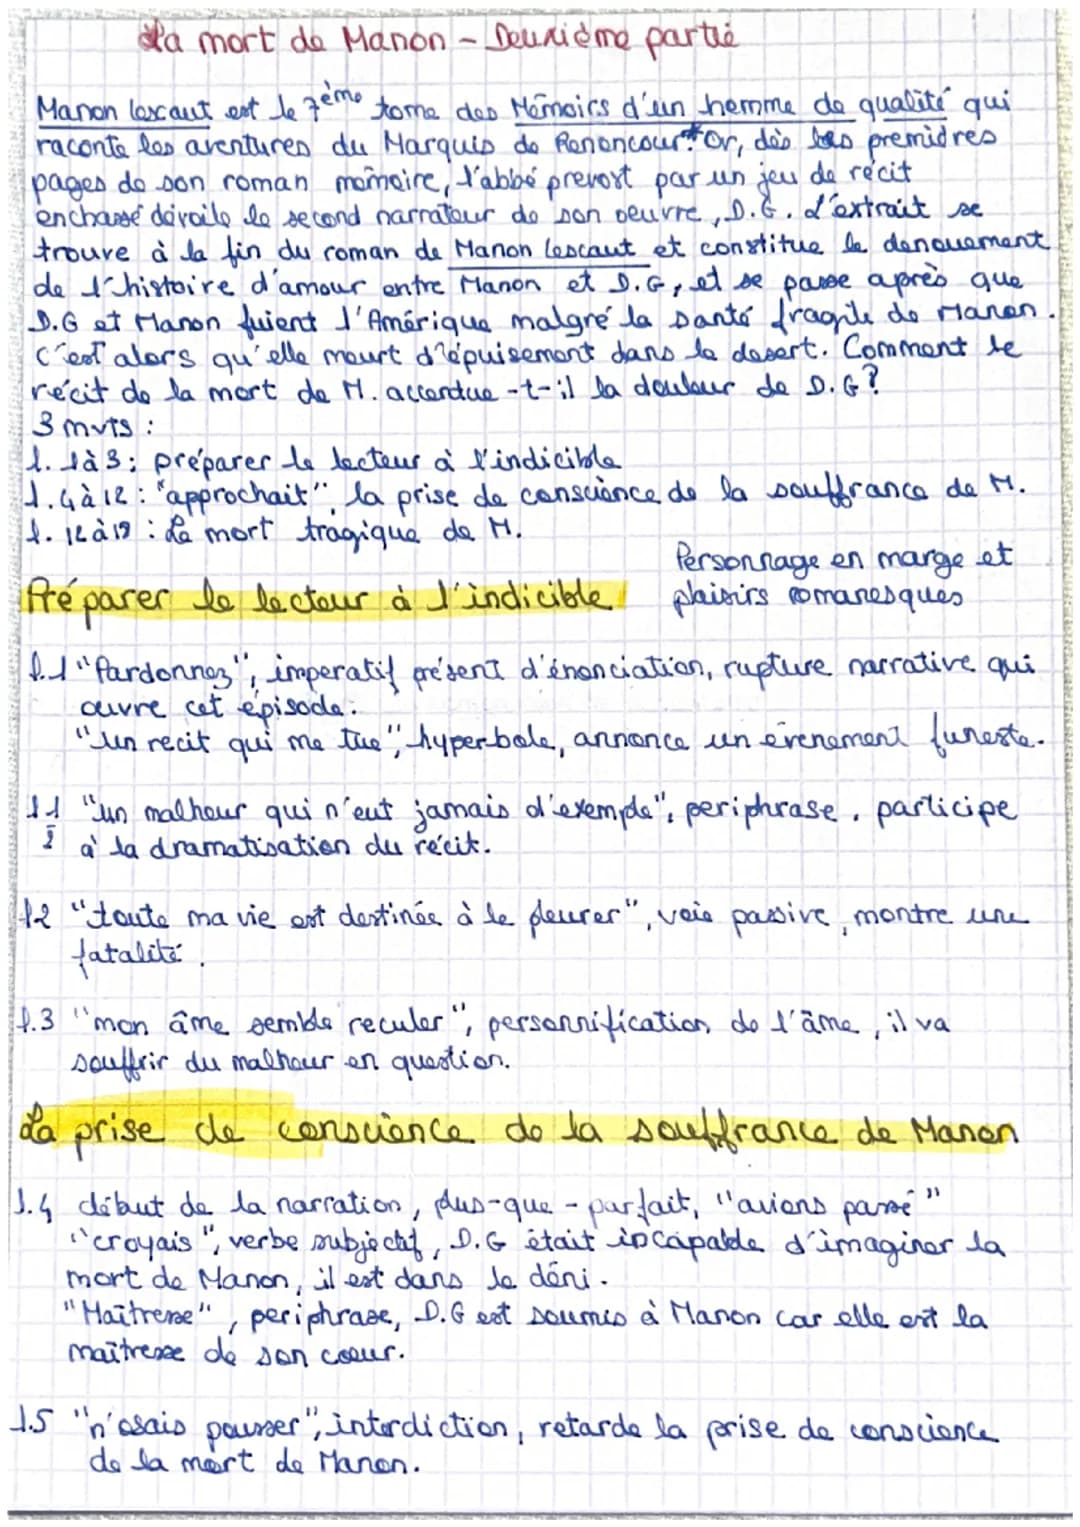 La mort de Manon - Deuxième partie
Manon lescaut est le 7ème tome des Mémoirs d'un homme de qualité qui
raconte les aventures du Marquis de Renoncour. Or, dès les premières
pages de son roman mémoire, l'abbé prevost par un jeu de récit
enchassé dévoile le second narrateur de son oeuvre, D.G. L'extrait se
trouve à la fin du roman de Manon lescaut et constitue le denouement
de l'histoire d'amour entre Manon et D.G, et se passe après que
D.G et Manon fuient l'Amérique malgré la santé fragile de Manon.
C'est alors qu'elle meurt d'épuisement dans le desert. Comment le
récit de la mort de M. accentue-t-il la douleur de D.G?
3 mvts :
l. 1à3: préparer le lecteur à l'indicible
l. 4à12: "approchait" la prise de conscience de la souffrance de M.
l. 12à19 : La mort tragique de M.
Personnage en marge et
plaisirs romanesques
Préparer le lecteur à l'indicible
l.1 "Pardonnez", imperatif présent d'énonciation, rupture narrative qui
ouvre cet épisode.
"Un recit qui me tue", hyperbole, annonce un évenement funeste.
l.1
2
"un malheur qui n'eut jamais d'exemple", periphrase, participe
à la dramatisation du récit.
l.2 "toute ma vie est destinée à le pleurer", voie passive, montre une
fatalité.
l.3 "mon âme semble reculer", personnification de l'âme, il va
souffrir du malheur en question.
La prise de conscience de la souffrance de Manon
l.4 début de la narration, plus-que-parfait, "avions passé"
"croyais", verbe subjectif, D.G était incapable d'imaginer la
mort de Manon, il est dans le déni.
"Maîtresse", periphrase, D.G est soumis à Manon car elle est la
maîtresse de son coeur.
l.5 "n'osais pousser", interdiction, retarde la prise de conscience
de la mort de Manon.